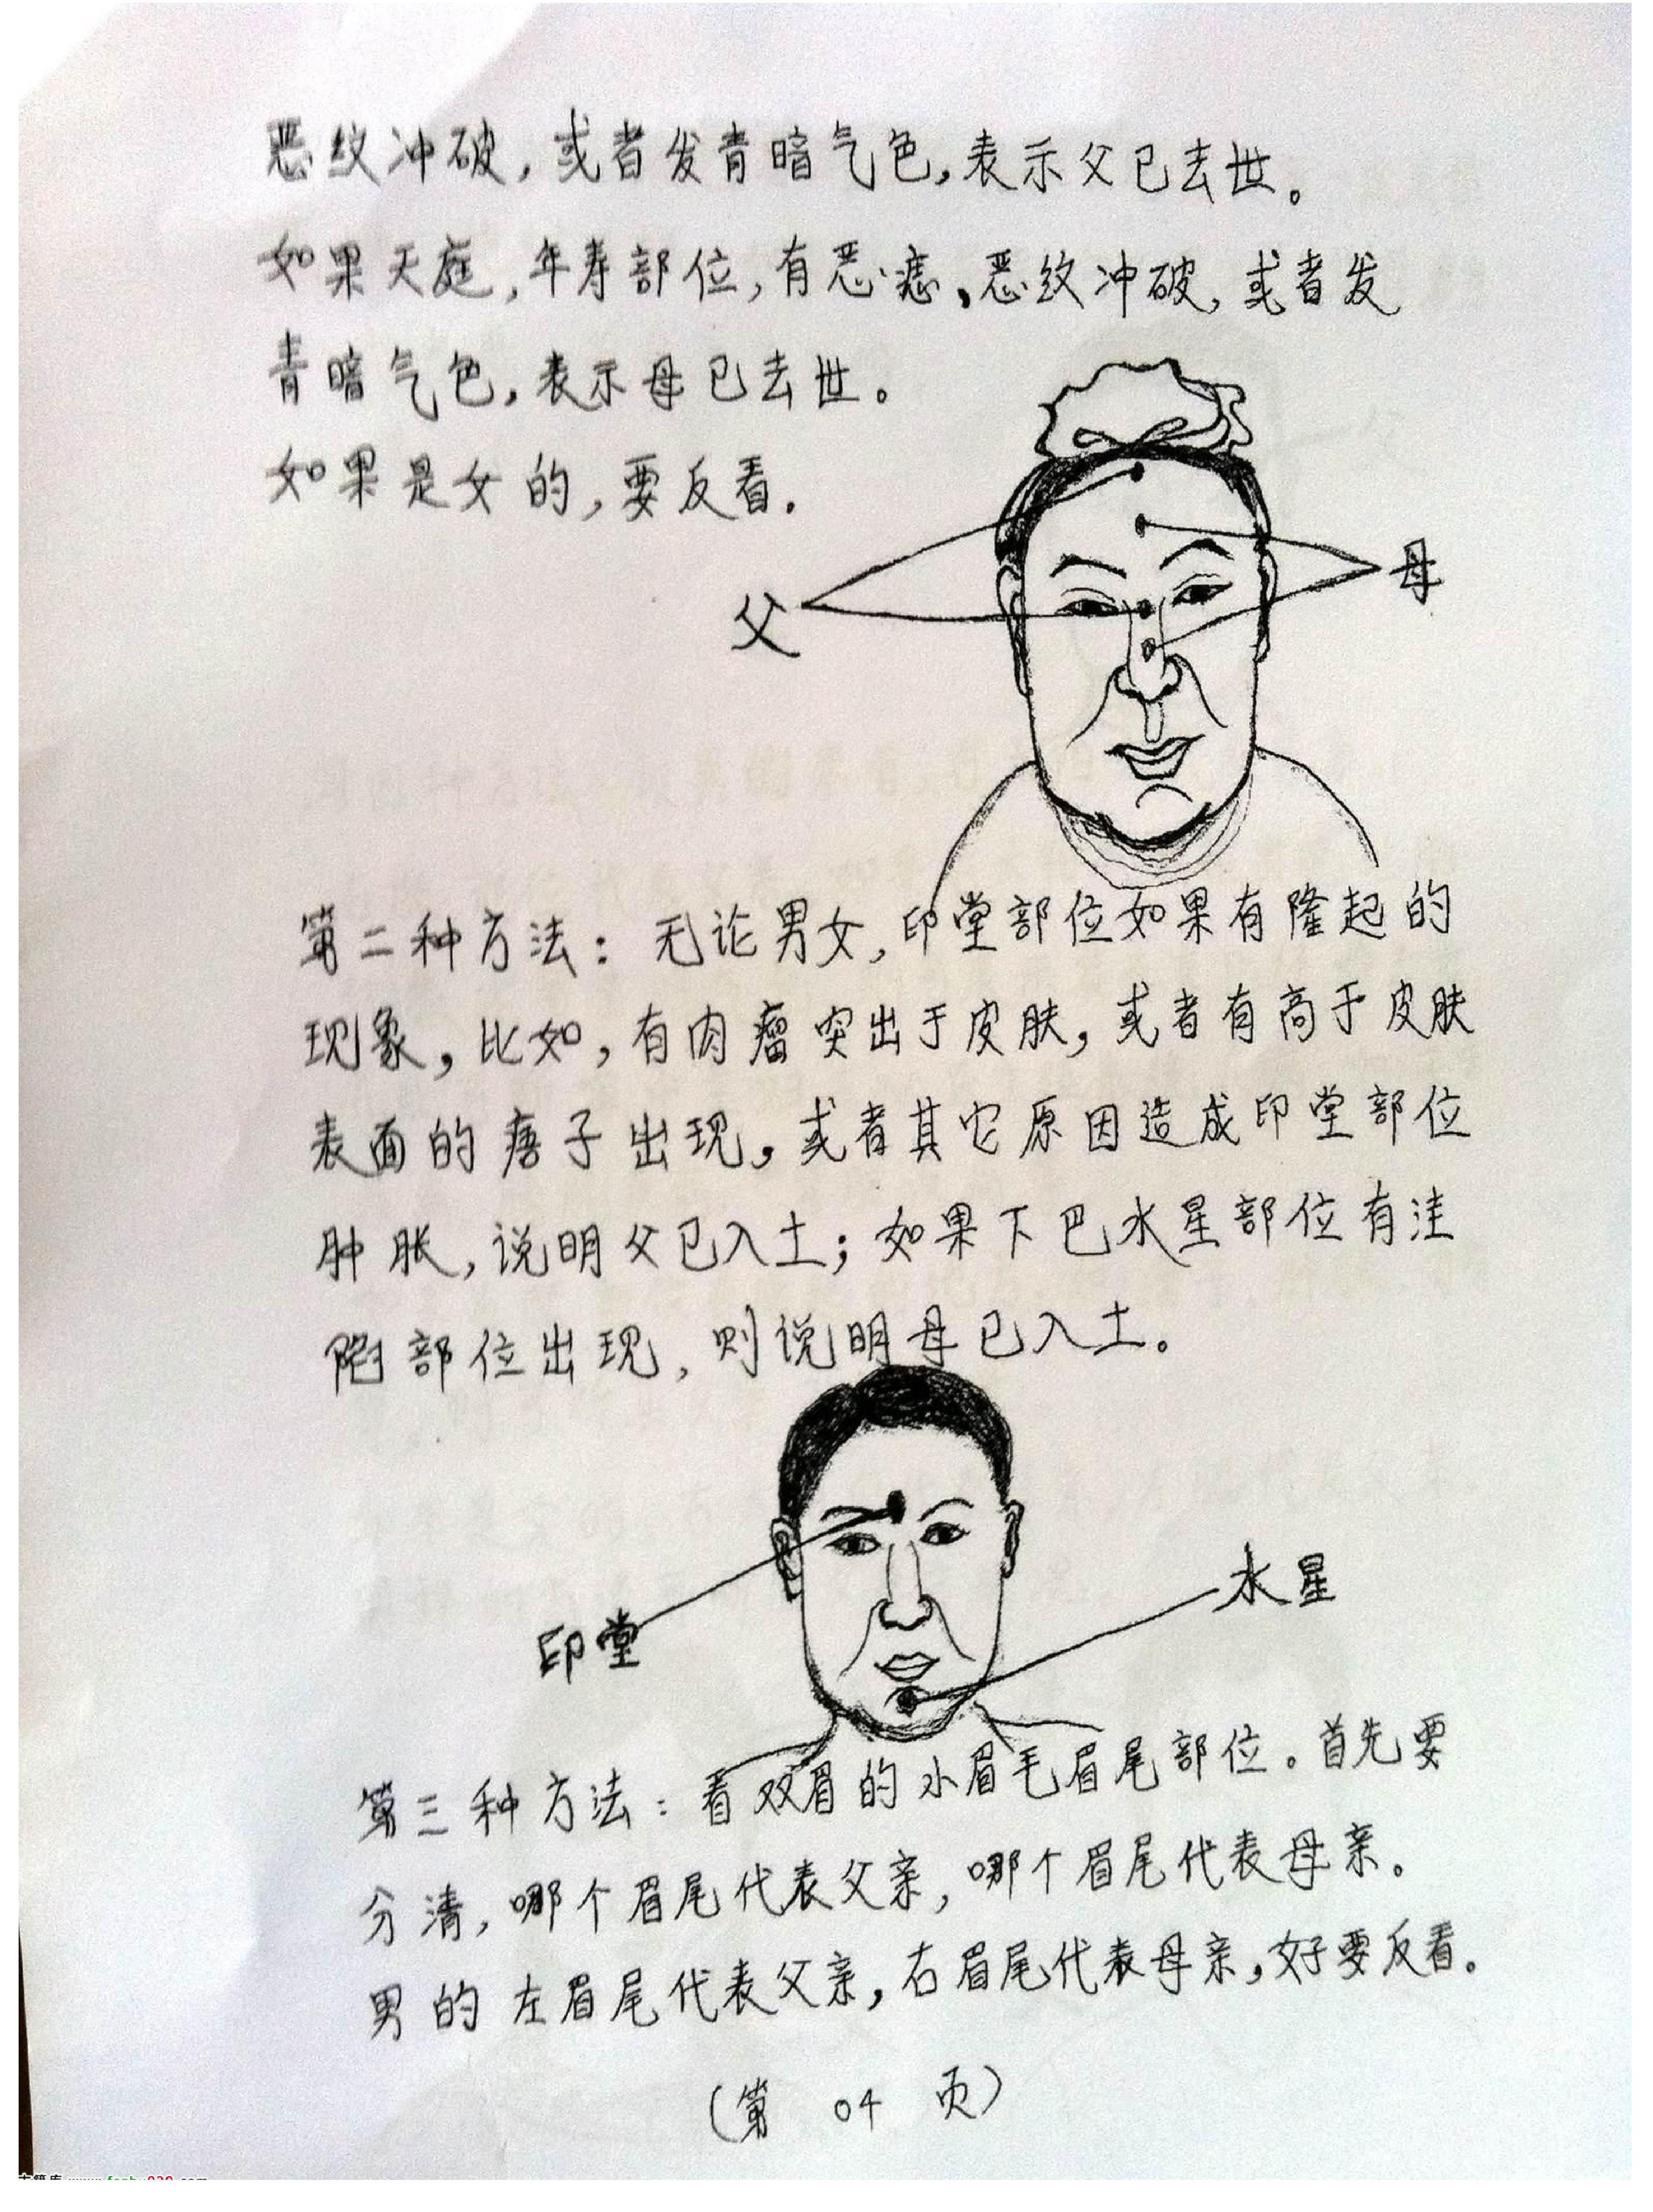 恶纹冲破，或者发青暗气色，表示父已去世。
如果天庭，年寿部位，有恶痣，恶纹冲破，或者发
青暗气色，表示母已去世。
如果是女的，要反看.
父
母
第二种方法：无论男女，印堂部位如果有隆起的
现象，比如，有肉瘤突出于皮肤，或者有高于皮肤
表面的痦子出现，或者其它原因造成印堂部位
肿胀，说明父已入土；如果下巴水星部位有洼
陷部位出现，则说明母已入土。
印堂
水星
第三种方法：看双眉的小眉毛眉尾部位。首先要
分清，哪个眉尾代表父亲，哪个眉尾代表母亲。
男的左眉尾代表父亲，右眉尾代表母亲，好要反看.
（第 04 页）